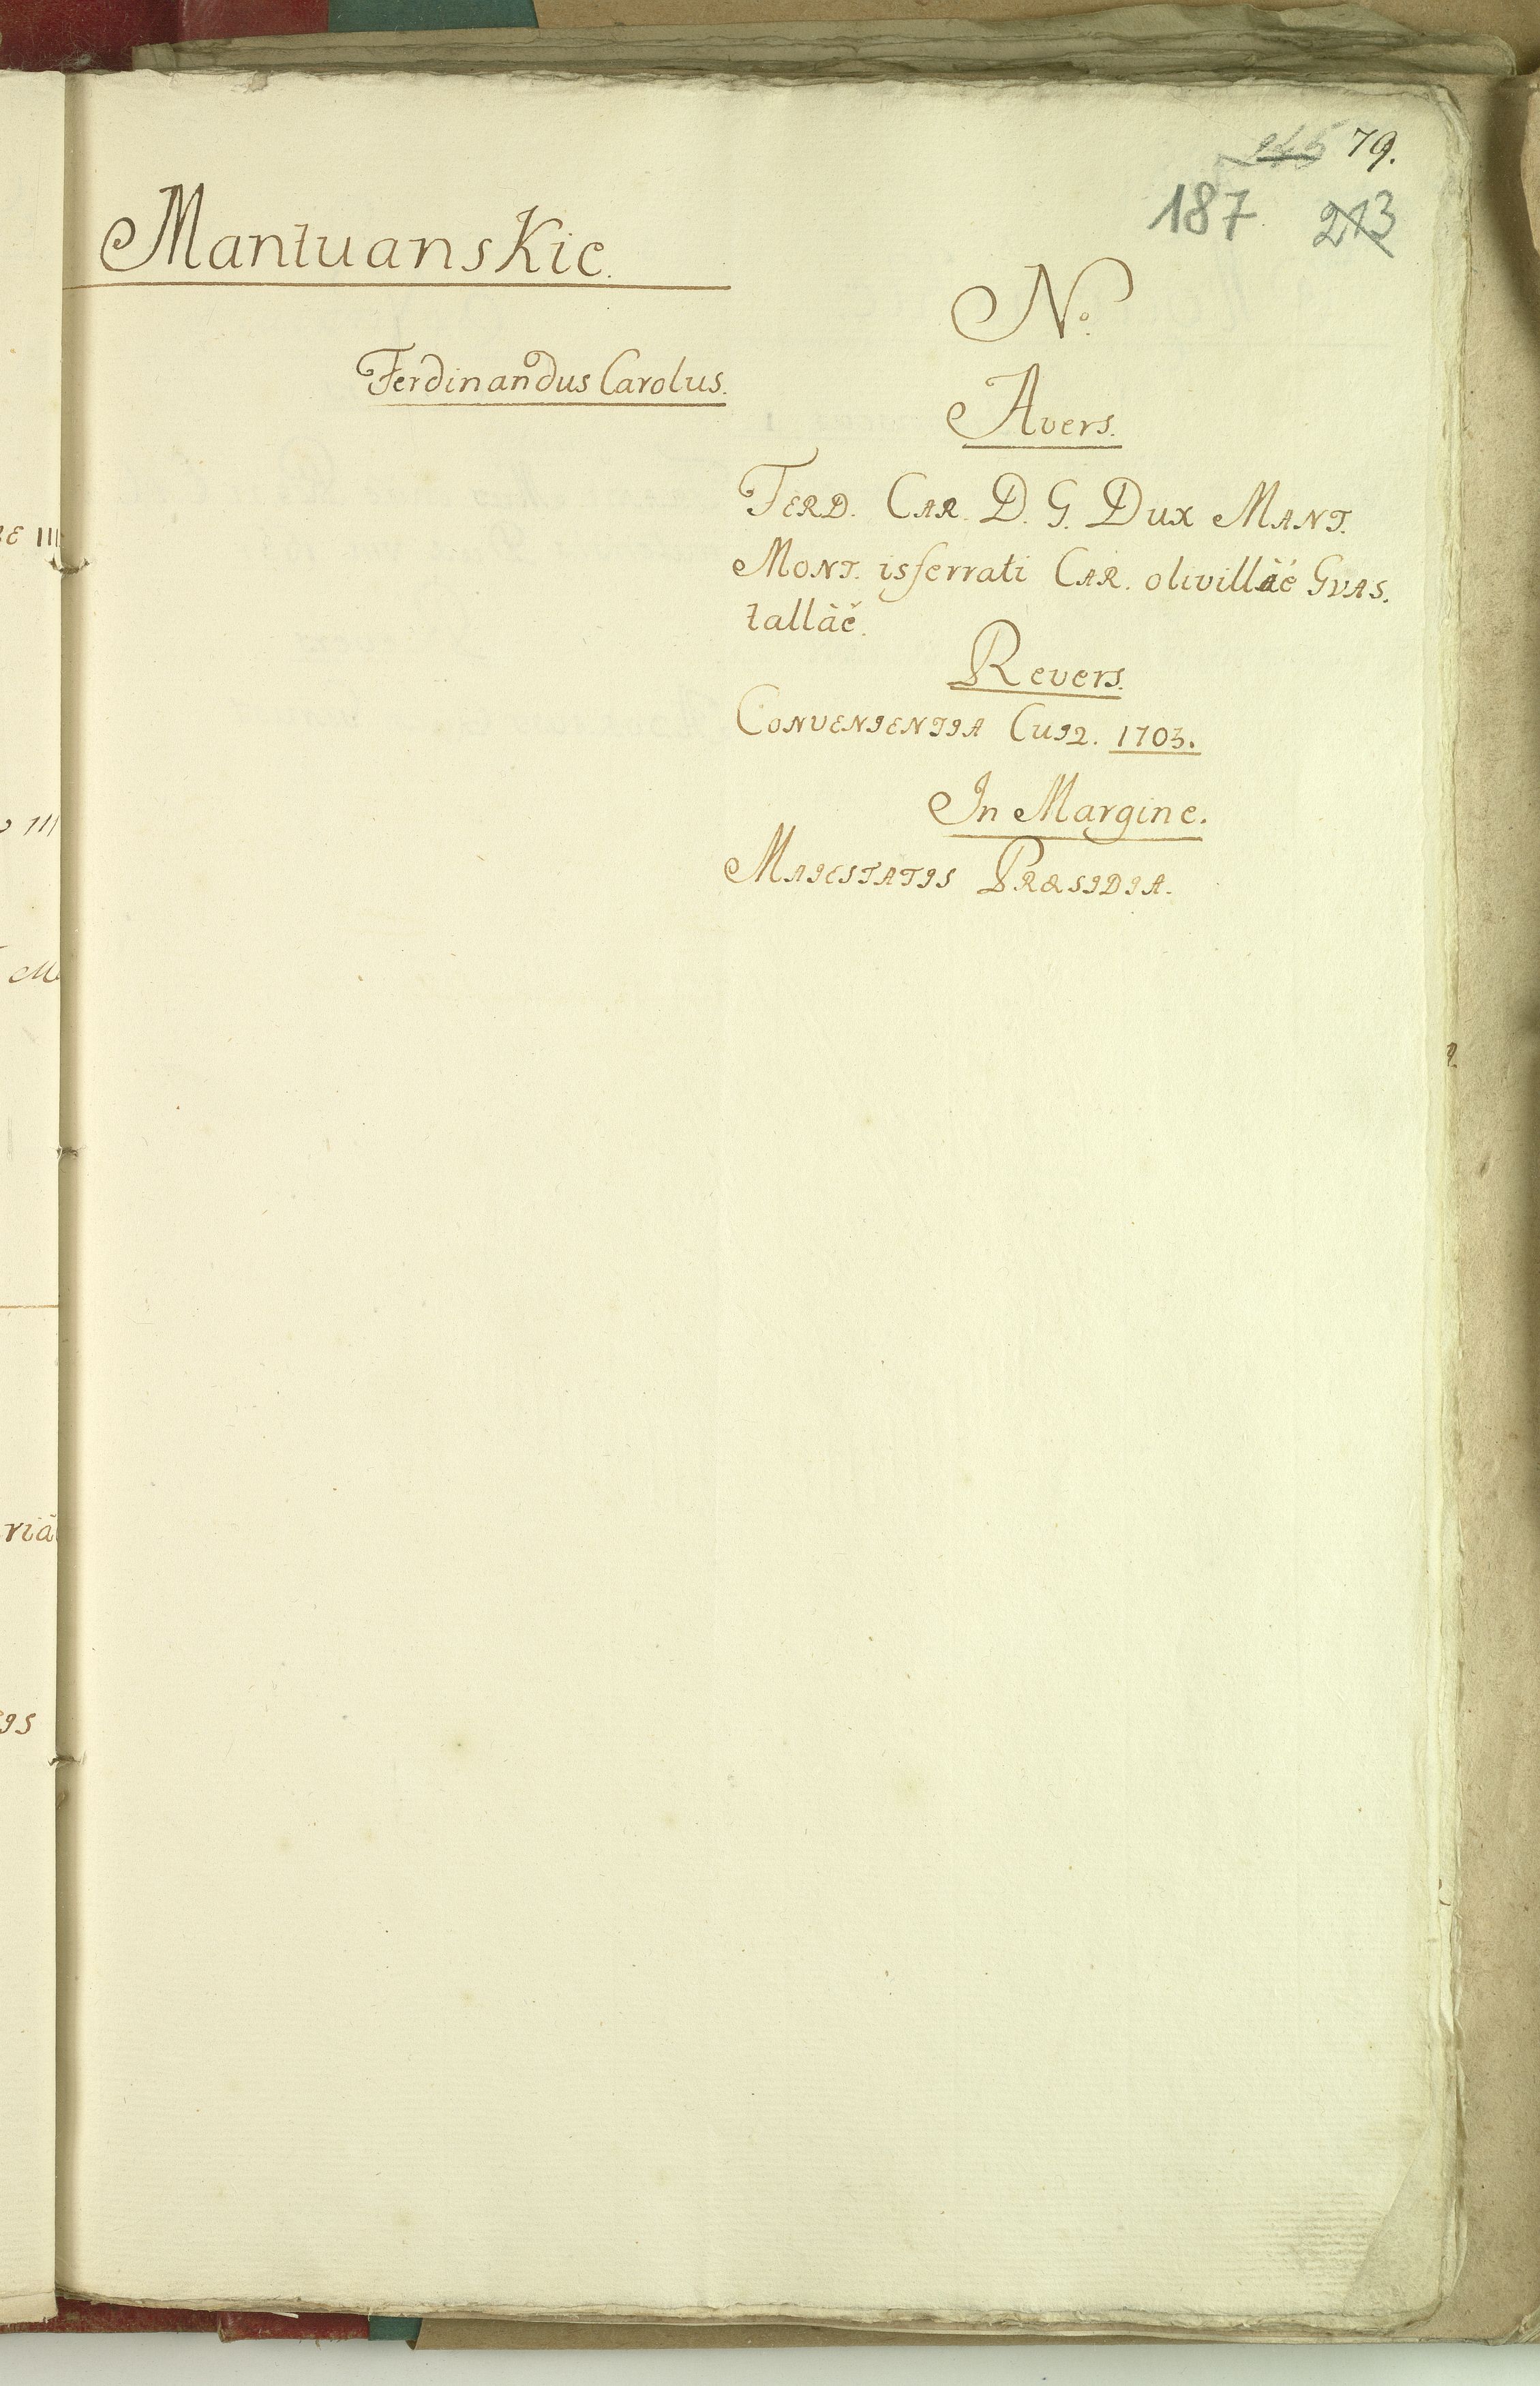 79.
187. 213
Mantuanskie.
Ferdinandus Carolus.
No.
Avers.
FERD. CAR. D. G. DUX MANT.
MONT. isferrati CAR. olivillaë GVAS.
tallaë.
Revers.
CONVENIENTIA CUIQ. 1703.
In Margine.
MAIESTATIS PRÆSIDIA.